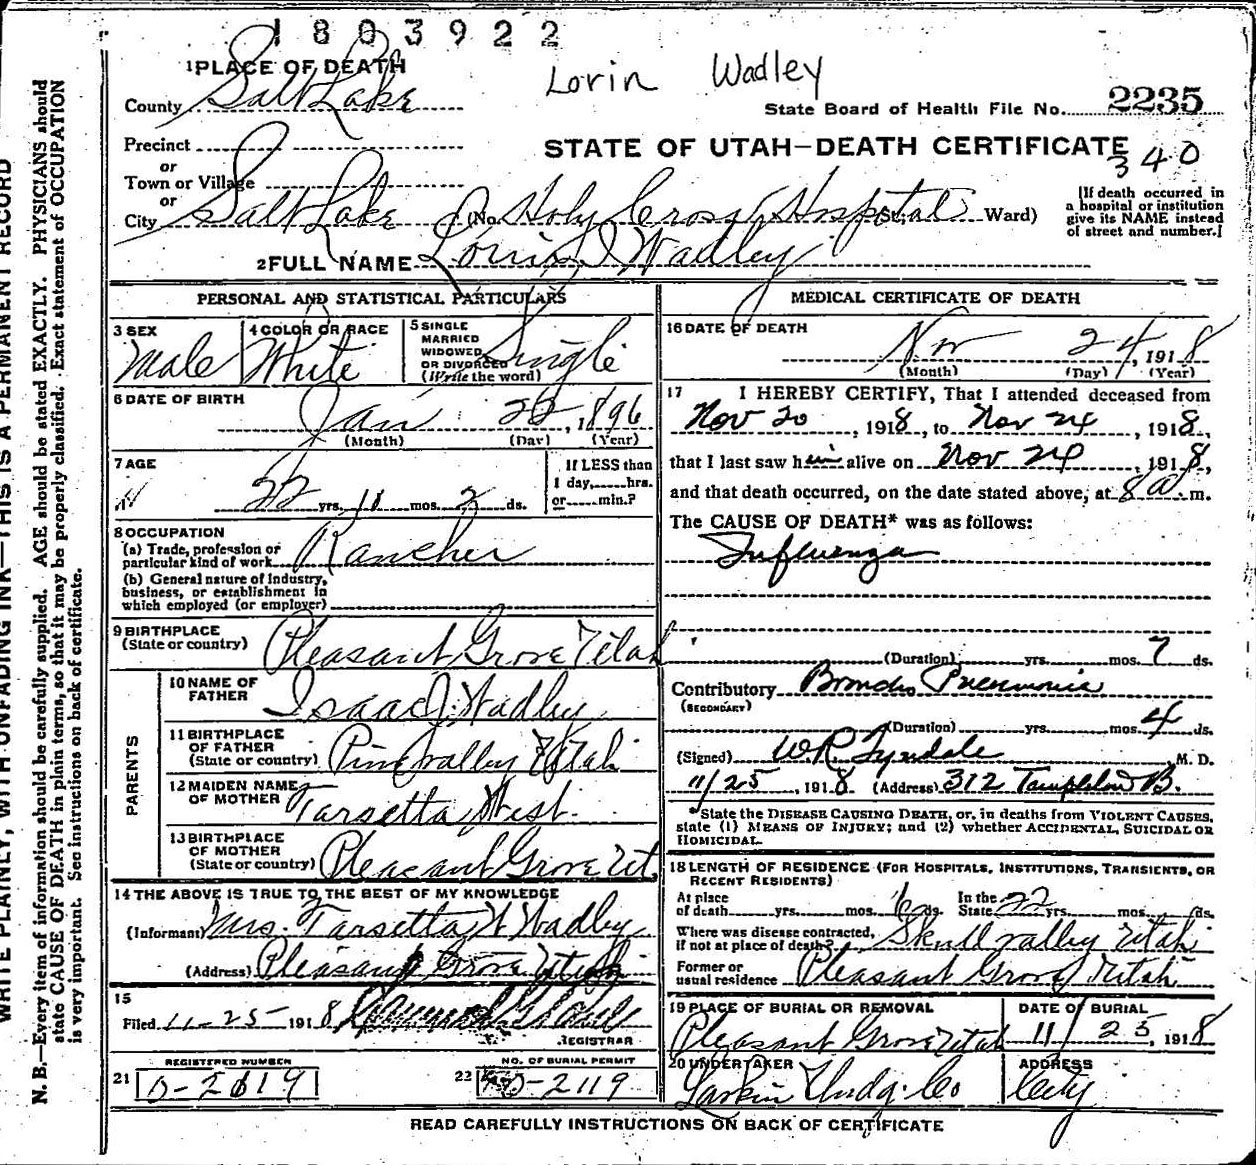 1803922
Lorin Wadley
1 PLACE OF DEATH
County Salt Lake
State Board of Health File No. 2235
Precinct
or
Town or Village
or
City Salt Lake (No. Holy Cross Hospital St. Ward)
STATE OF UTAH—DEATH CERTIFICATE
340
[If death occurred in
a hospital or institution
give its NAME instead
of street and number.]
2 FULL NAME Wadley
PERSONAL AND STATISTICAL PARTICULARS
3 SEX Male
4 COLOR OR RACE White
5 SINGLE
MARRIED
WIDOWED
OR DIVORCED
(Write the word) Single
6 DATE OF BIRTH
Jan 22, 1896
(Month) (Day) (Year)
7 AGE
22 yrs. mos. 2 ds.
If LESS than
1 day, hrs.
or min.?
8 OCCUPATION
(a) Trade, profession or
particular kind of work Rancher
(b) General nature of industry,
business, or establishment in
which employed (or employer)
9 BIRTHPLACE
(State or country) Pleasant Grove Utah
PARENTS
10 NAME OF
FATHER Isaac J. Wadley
11 BIRTHPLACE
OF FATHER
(State or country) Pine valley Utah
12 MAIDEN NAME
OF MOTHER Tarsetta West
13 BIRTHPLACE
OF MOTHER
(State or country) Pleasant Grove Ut
14 THE ABOVE IS TRUE TO THE BEST OF MY KNOWLEDGE
(Informant) Mrs. Tarsetta W Wadley
(Address) Pleasant Grove Utah
15
Filed 11-25- 1918
REGISTRAR
REGISTERED NUMBER
21 D-2619
NO. OF BURIAL PERMIT
22 D-2119
MEDICAL CERTIFICATE OF DEATH
16 DATE OF DEATH
Nov 24, 1918
(Month) (Day) (Year)
17 I HEREBY CERTIFY, That I attended deceased from
Nov 20, 1918, to Nov 24, 1918,
that I last saw him alive on Nov 24, 1918,
and that death occurred, on the date stated above, at 8 a. m.
The CAUSE OF DEATH* was as follows:
Influenza
(Duration) yrs. mos. 7 ds.
Contributory Broncho Pneumonia
(SECONDARY)
(Duration) yrs. mos. 4 ds.
(Signed) W.R. Tyndale M. D.
11/25, 1918 (Address) 312 Templeton B.
*State the DISEASE CAUSING DEATH, or, in deaths from VIOLENT CAUSES,
state (1) MEANS OF INJURY; and (2) whether ACCIDENTAL, SUICIDAL OR
HOMICIDAL.
18 LENGTH OF RESIDENCE (FOR HOSPITALS, INSTITUTIONS, TRANSIENTS, OR
RECENT RESIDENTS)
At place
of death yrs. mos. 6 ds. In the
State 22 yrs. mos. ds.
Where was disease contracted,
if not at place of death? Skull valley Utah
Former or
usual residence Pleasant Grove Utah
19 PLACE OF BURIAL OR REMOVAL
Pleasant Grove Utah
DATE OF BURIAL
11/25, 1918
20 UNDERTAKER
Larkin Undg. Co
ADDRESS
City
READ CAREFULLY INSTRUCTIONS ON BACK OF CERTIFICATE
WRITE PLAINLY, WITH UNFADING INK—THIS IS A PERMANENT RECORD
N. B.—Every item of information should be carefully supplied. AGE should be stated EXACTLY. PHYSICIANS should
state CAUSE OF DEATH in plain terms, so that it may be properly classified. Exact statement of OCCUPATION
is very important. See instructions on back of certificate.